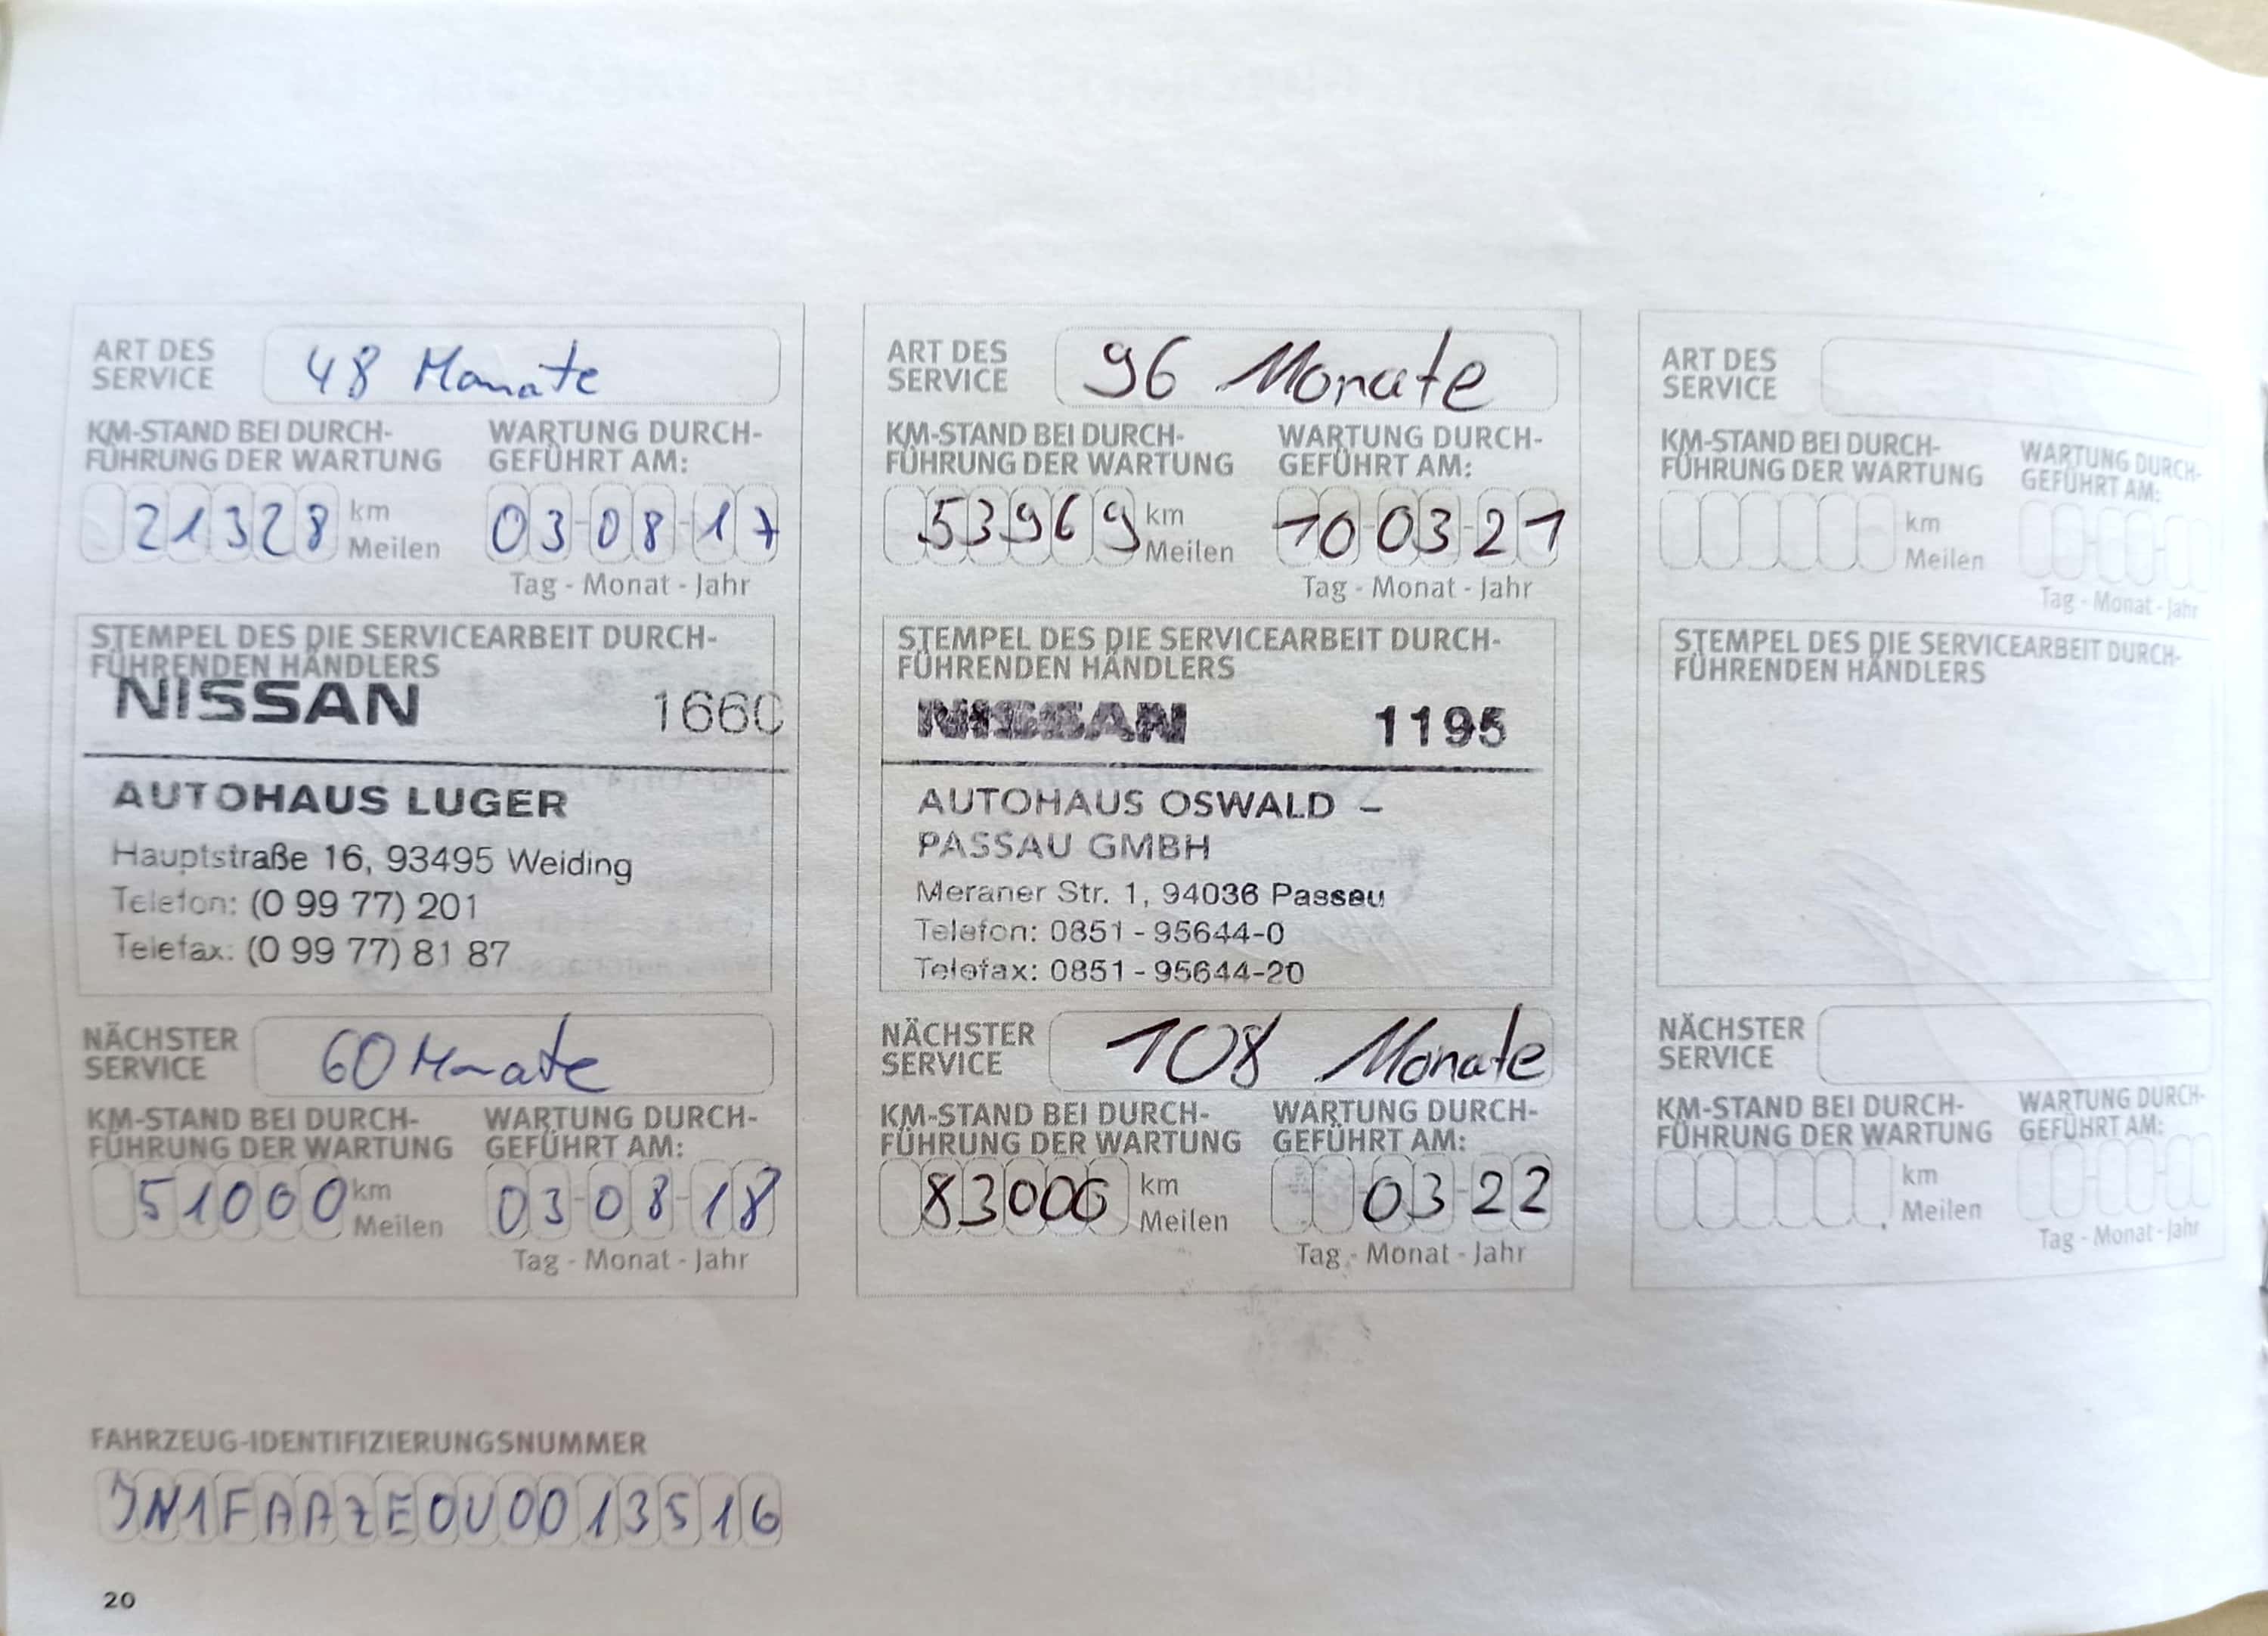 ART DES
SERVICE
48 Monate
KM-STAND BEI DURCH-
FÜHRUNG DER WARTUNG
WARTUNG DURCH-
GEFÜHRT AM:
21328 km
Meilen
03-08-17
Tag - Monat - Jahr
STEMPEL DES DIE SERVICEARBEIT DURCH-
FÜHRENDEN HÄNDLERS
NISSAN 1660
AUTOHAUS LUGER
Hauptstraße 16, 93495 Weiding
Telefon: (0 99 77) 201
Telefax: (0 99 77) 81 87
NÄCHSTER
SERVICE
60 Monate
KM-STAND BEI DURCH-
FÜHRUNG DER WARTUNG
WARTUNG DURCH-
GEFÜHRT AM:
51000 km
Meilen
03-08-18
Tag - Monat - Jahr
ART DES
SERVICE
96 Monate
KM-STAND BEI DURCH-
FÜHRUNG DER WARTUNG
WARTUNG DURCH-
GEFÜHRT AM:
53969 km
Meilen
10-03-21
Tag - Monat - Jahr
STEMPEL DES DIE SERVICEARBEIT DURCH-
FÜHRENDEN HÄNDLERS
NISSAN 1195
AUTOHAUS OSWALD –
PASSAU GMBH
Meraner Str. 1, 94036 Passau
Telefon: 0851 - 95644-0
Telefax: 0851 - 95644-20
NÄCHSTER
SERVICE
108 Monate
KM-STAND BEI DURCH-
FÜHRUNG DER WARTUNG
WARTUNG DURCH-
GEFÜHRT AM:
83000 km
Meilen
03-22
Tag - Monat - Jahr
ART DES
SERVICE
KM-STAND BEI DURCH-
FÜHRUNG DER WARTUNG
WARTUNG DURCH-
GEFÜHRT AM:
km
Meilen
Tag - Monat - Jahr
STEMPEL DES DIE SERVICEARBEIT DURCH-
FÜHRENDEN HÄNDLERS
NÄCHSTER
SERVICE
KM-STAND BEI DURCH-
FÜHRUNG DER WARTUNG
WARTUNG DURCH-
GEFÜHRT AM:
km
Meilen
Tag - Monat - Jahr
FAHRZEUG-IDENTIFIZIERUNGSNUMMER
JN1FAAZE0U0013516
20